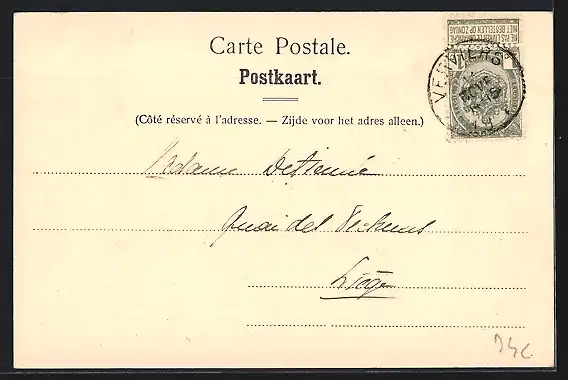 NE PAS LIVRER LE DIMANCHE
NIET BESTELLEN OP ZONDAG
Carte Postale.
Postkaart.
VERVIERS
(Côté réservé à l'adresse. — Zijde voor het adres alleen.)
Madame Detienne
Quai des Pêcheurs
Liège